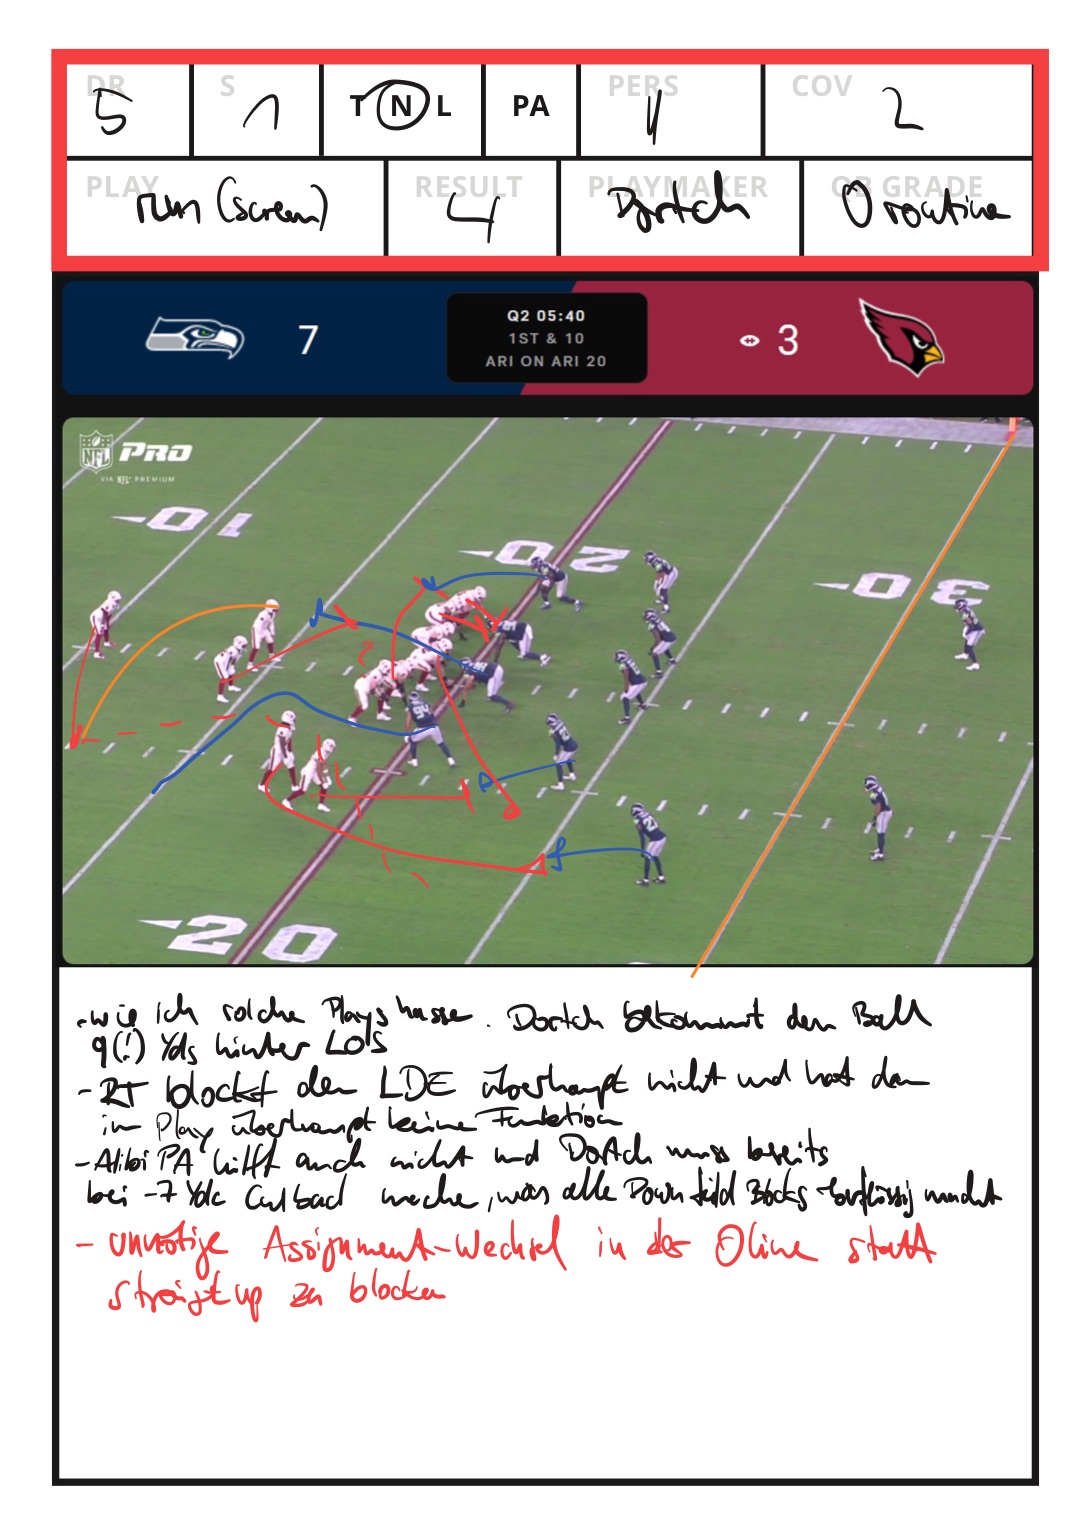 DR S T N L PA PERS COV
5 1 11 2
PLAY RESULT PLAYMAKER QB GRADE
run (screen) 4 Dortch 0 routine
7
Q2 05:40
1ST & 10
ARI ON ARI 20
3
NFL PRO
VIA NFL+ PREMIUM
10
20
30
20
?
- wie ich solche Plays hasse. Dortch bekommt den Ball
9(!) Yds hinter LOS
- RT blockt den LDE überhaupt nicht und hat dann
im Play überhaupt keine Funktion
- Alibi PA hilft auch nicht und Dortch muss bereits
bei -7 Yds Cutback machen, was alle Downfield Blocks überflüssig macht
- unnötige Assignment-Wechsel in der Oline statt
straight up zu blocken